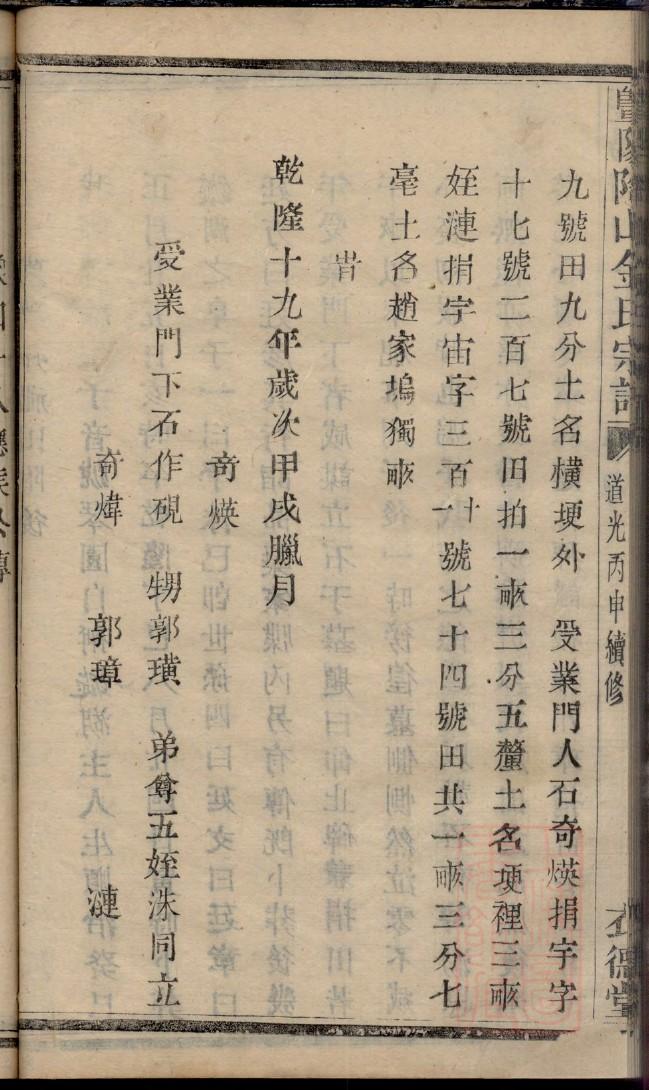 暨陽陶山金氏宗譜
道光丙申續修
德堂
九號田九分土名橫埂外 受業門人石奇煐捐宇字
十七號二百七號旧拍一畝三分五釐土名埂裡三畝
姪漣捐字宙字三百廿一號七十四號田共一畝三分七
毫土名趙家塢獨畝
旹
乾隆十九年歲次甲戌臘月
奇煐
受業門下石作硯 甥郭璜 弟尊五姪洙同立
奇煒 郭璋 漣